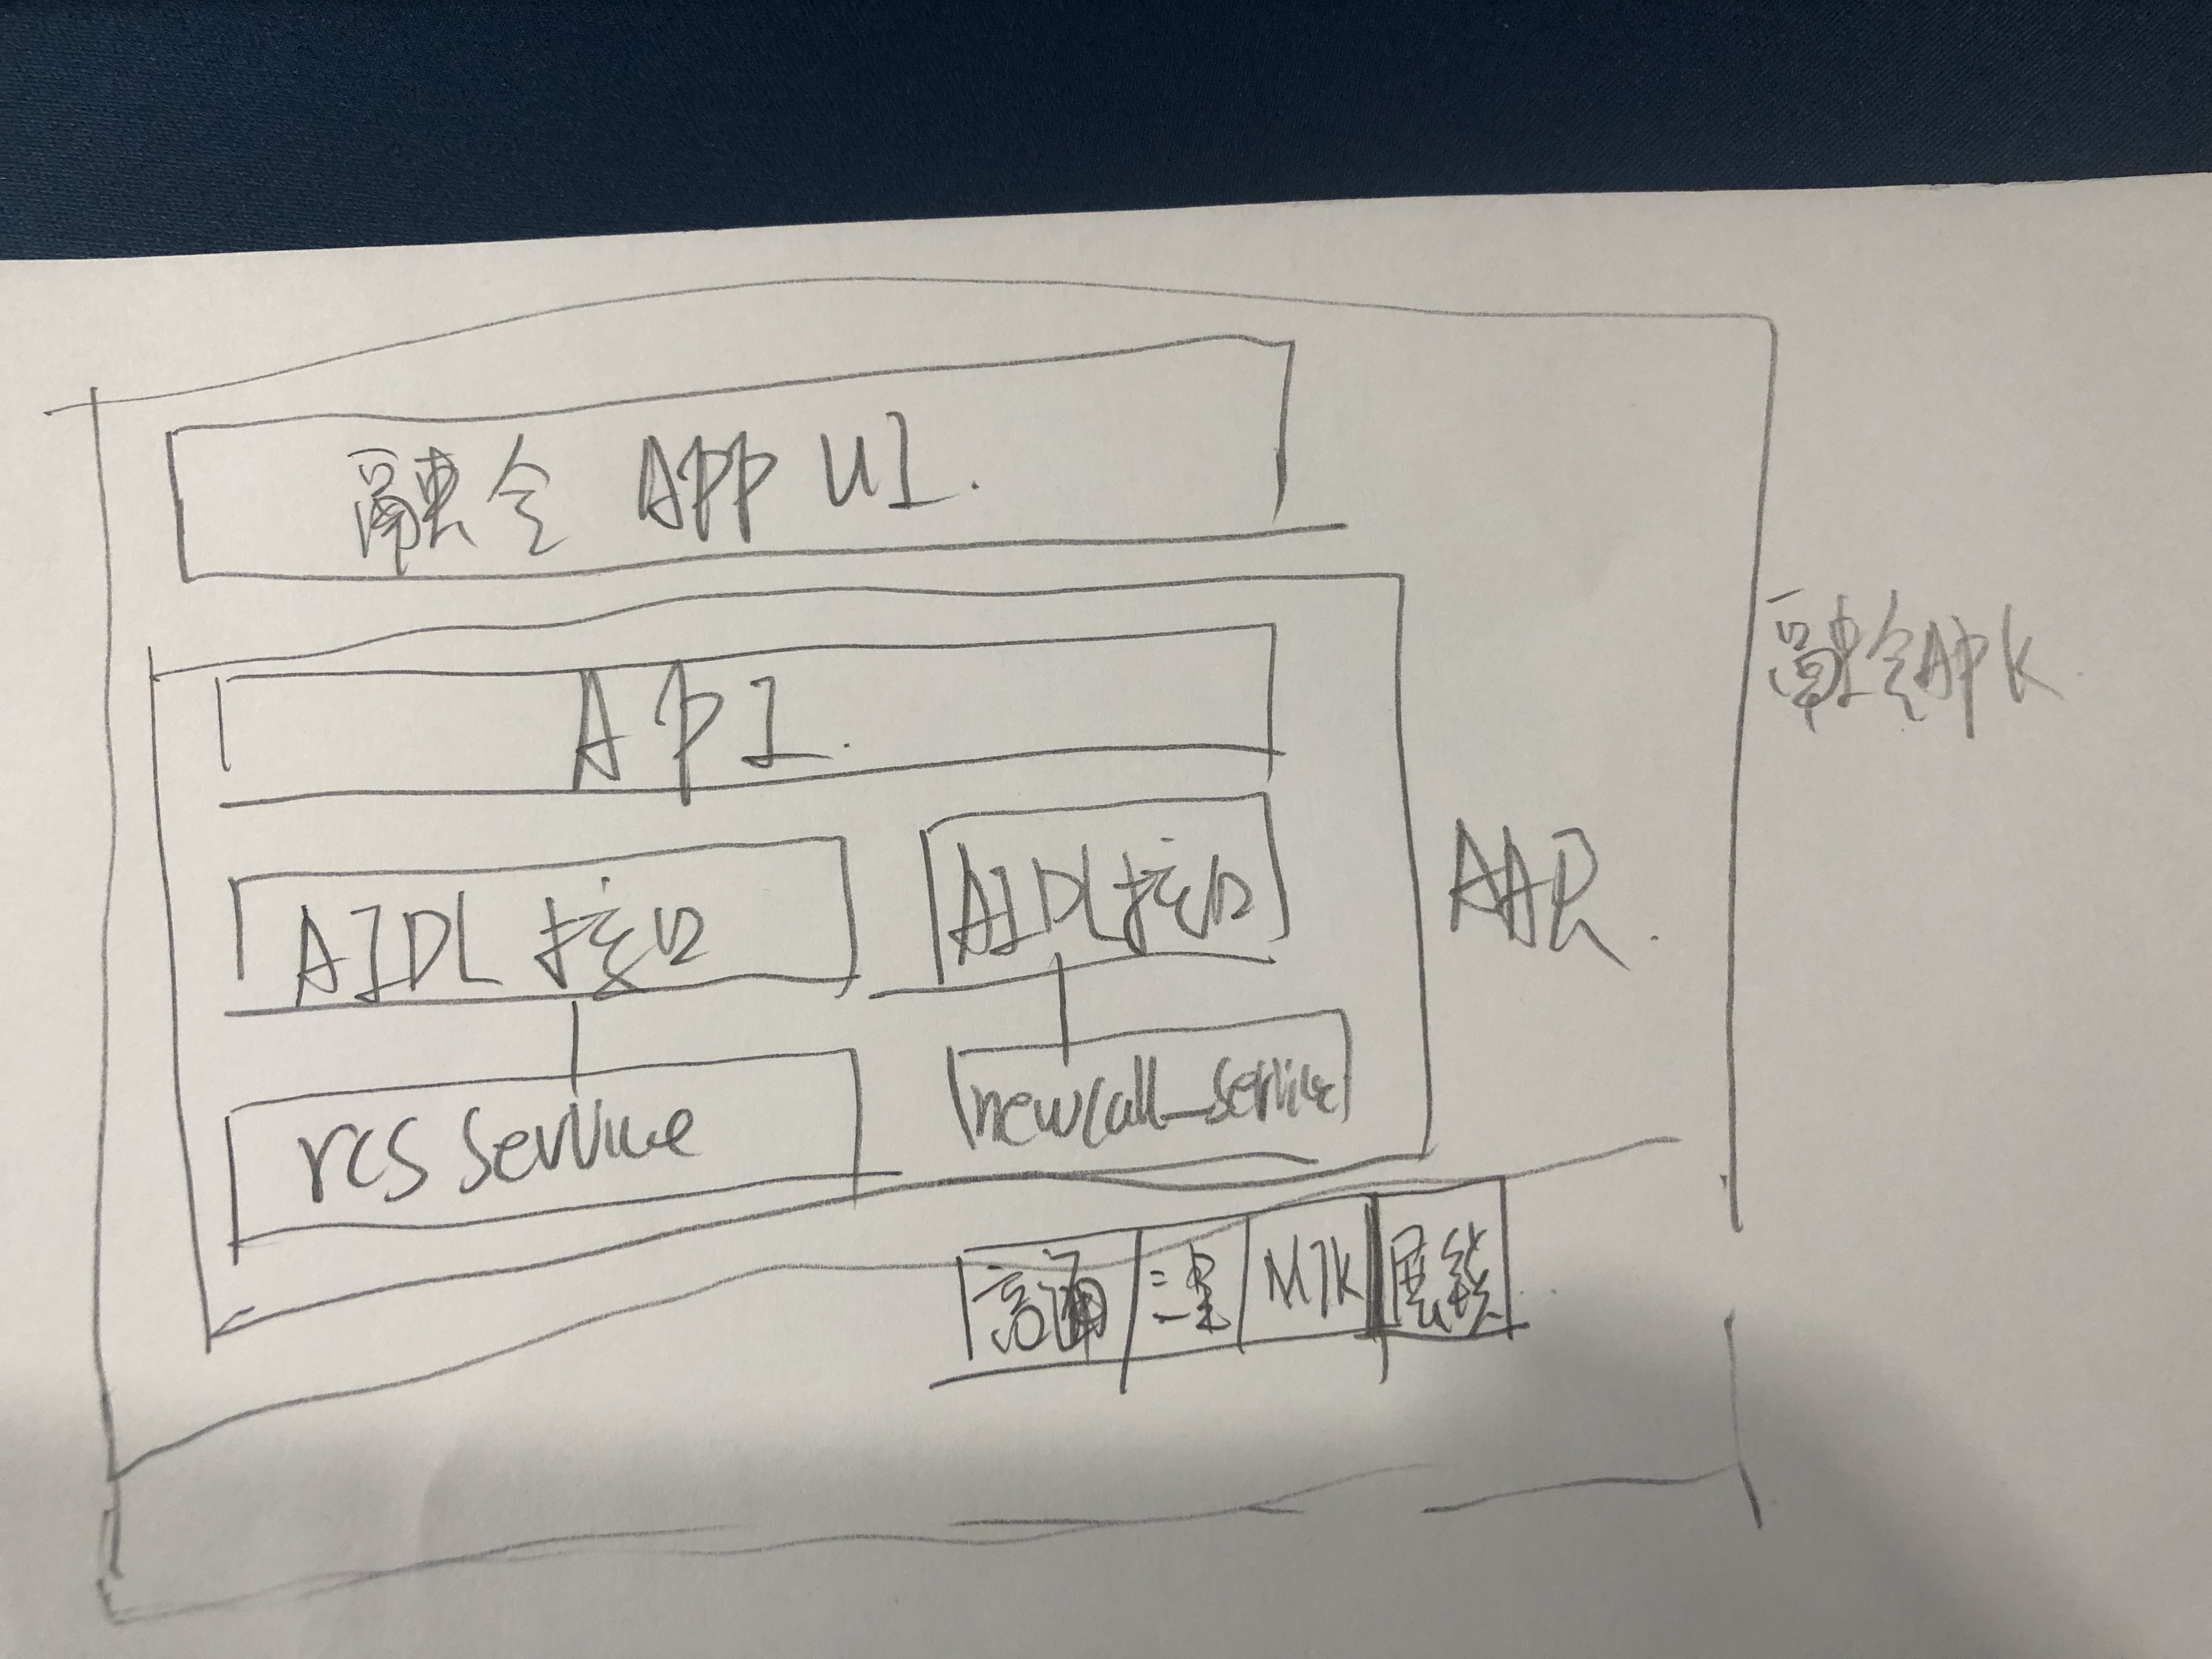 融合 APP UI.
API.
AIDL接口 AIDL接口
rcs service newcall_service
AAR.
融合APK
高通 三星 MTK 展锐